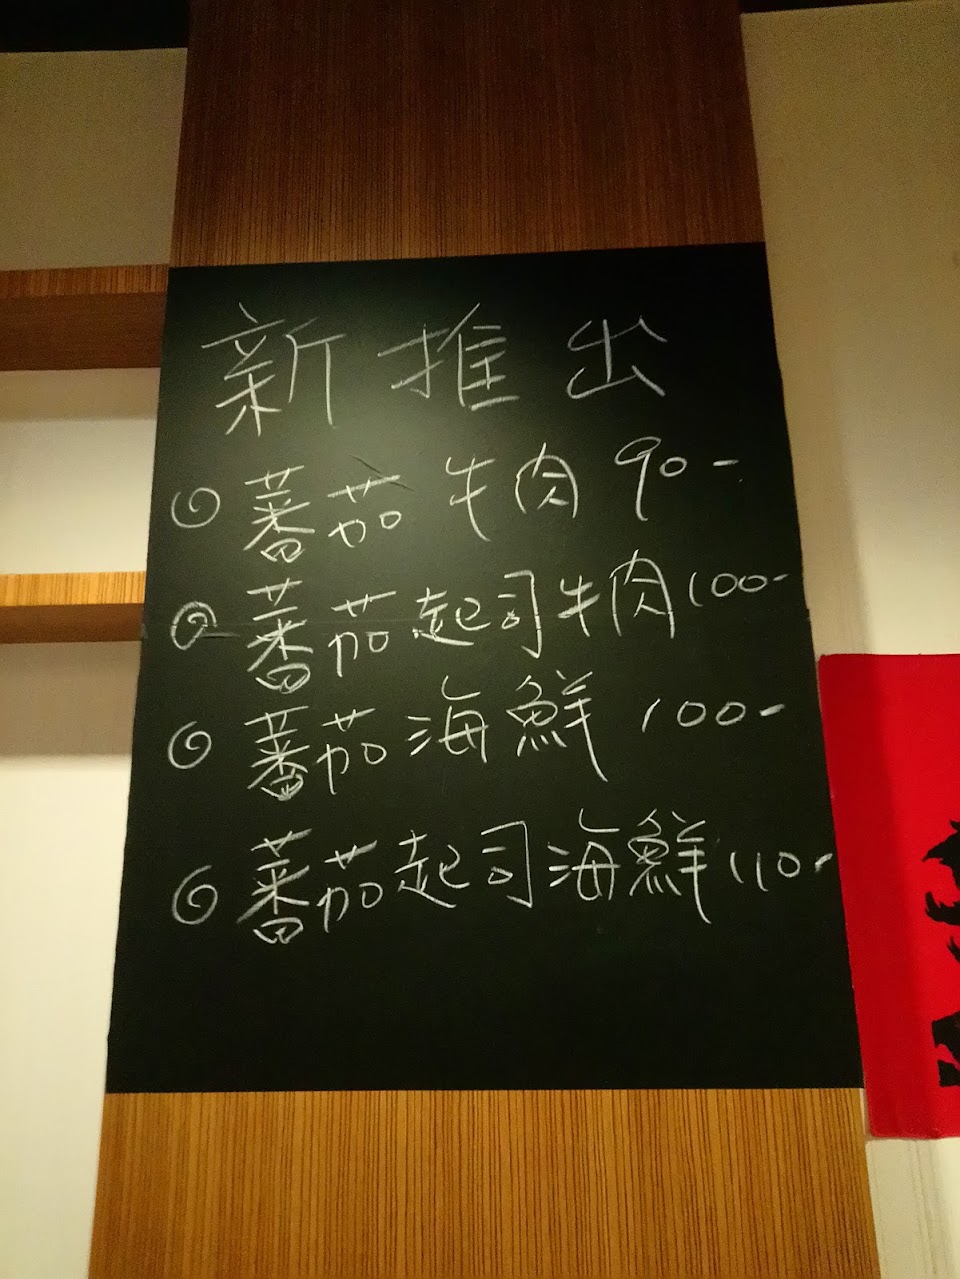 新推出
蕃茄牛肉 90-
蕃茄起司牛肉 100-
蕃茄海鮮 100-
蕃茄起司海鮮 110-